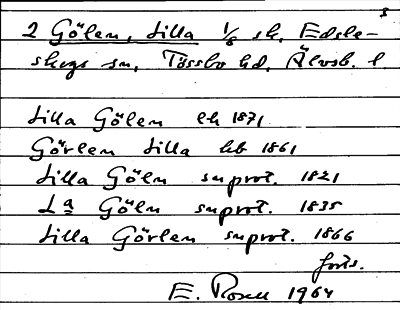 s
2 Gölen, Lilla 1/8 sk. Edsle-
skogs sn, Tössbo hd. Älvsb. l
Lilla Gölen lh 1871
Görlen Lilla hb 1861
Lilla Göln snprot. 1821
La Göln snprot. 1835
Lilla Görlen snprot. 1866
forts.
E. Rosell 1964